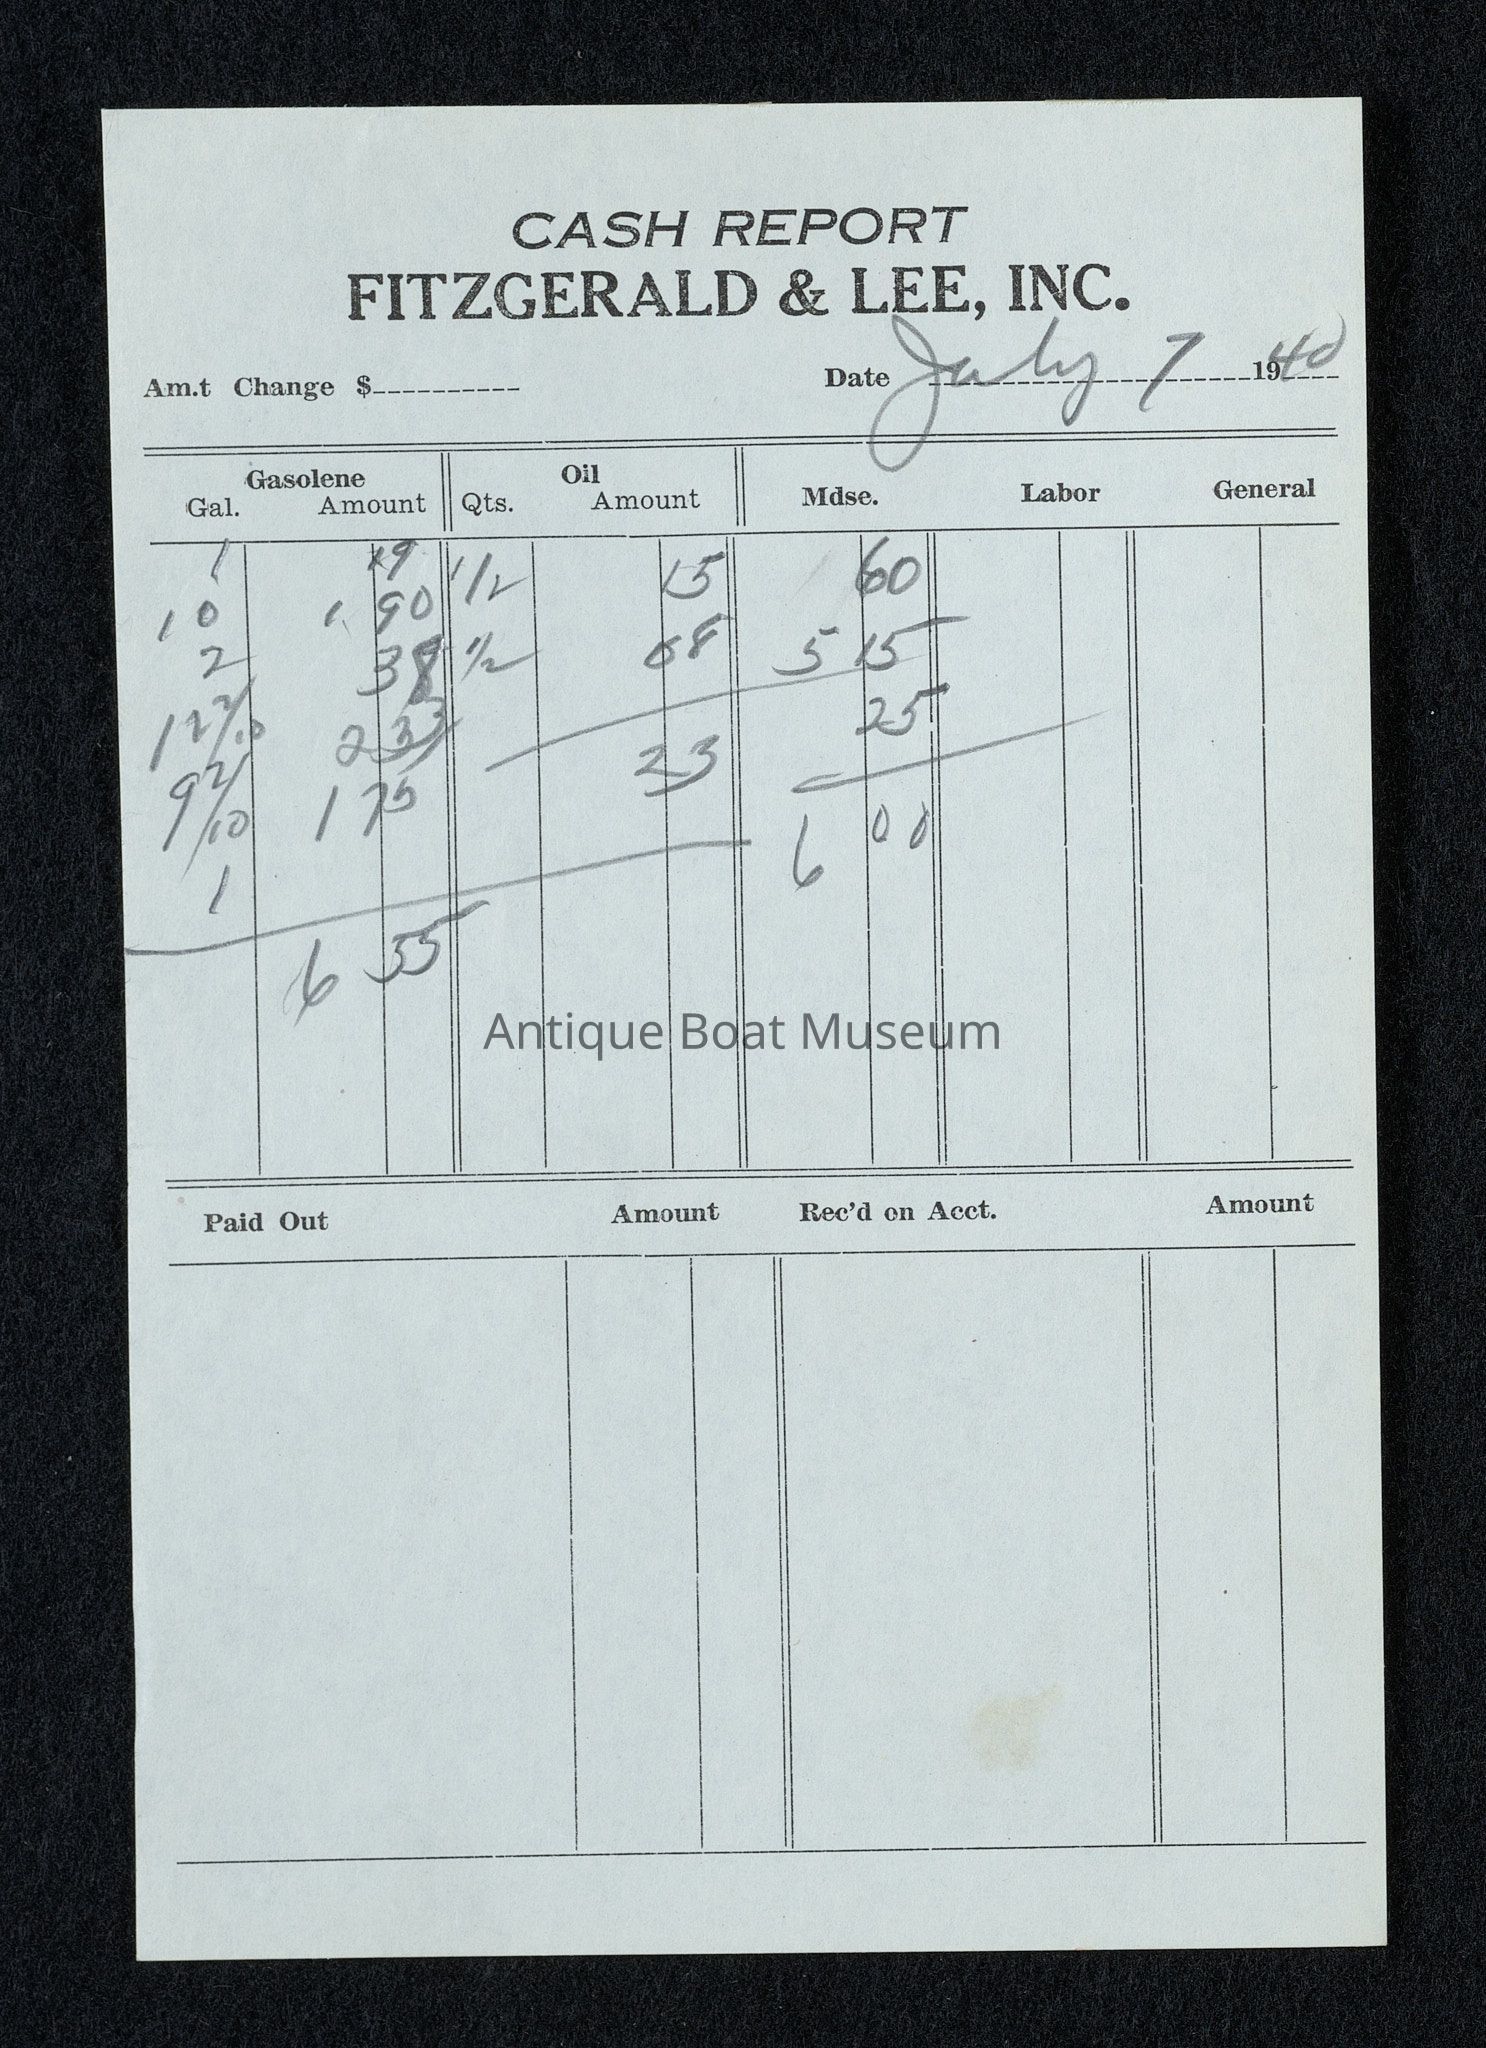 CASH REPORT
FITZGERALD & LEE, INC.
Am.t Change $ Date July 7 1940
Gasolene Oil
Gal. Amount Qts. Amount Mdse. Labor General
1 19 1/2 15 60
10 1 90
2 38 1/2 08 5 15
12 2/10 2 33 23 25
9 2/10 1 75 6 00
1
6 55
Antique Boat Museum
Paid Out Amount Rec'd on Acct. Amount